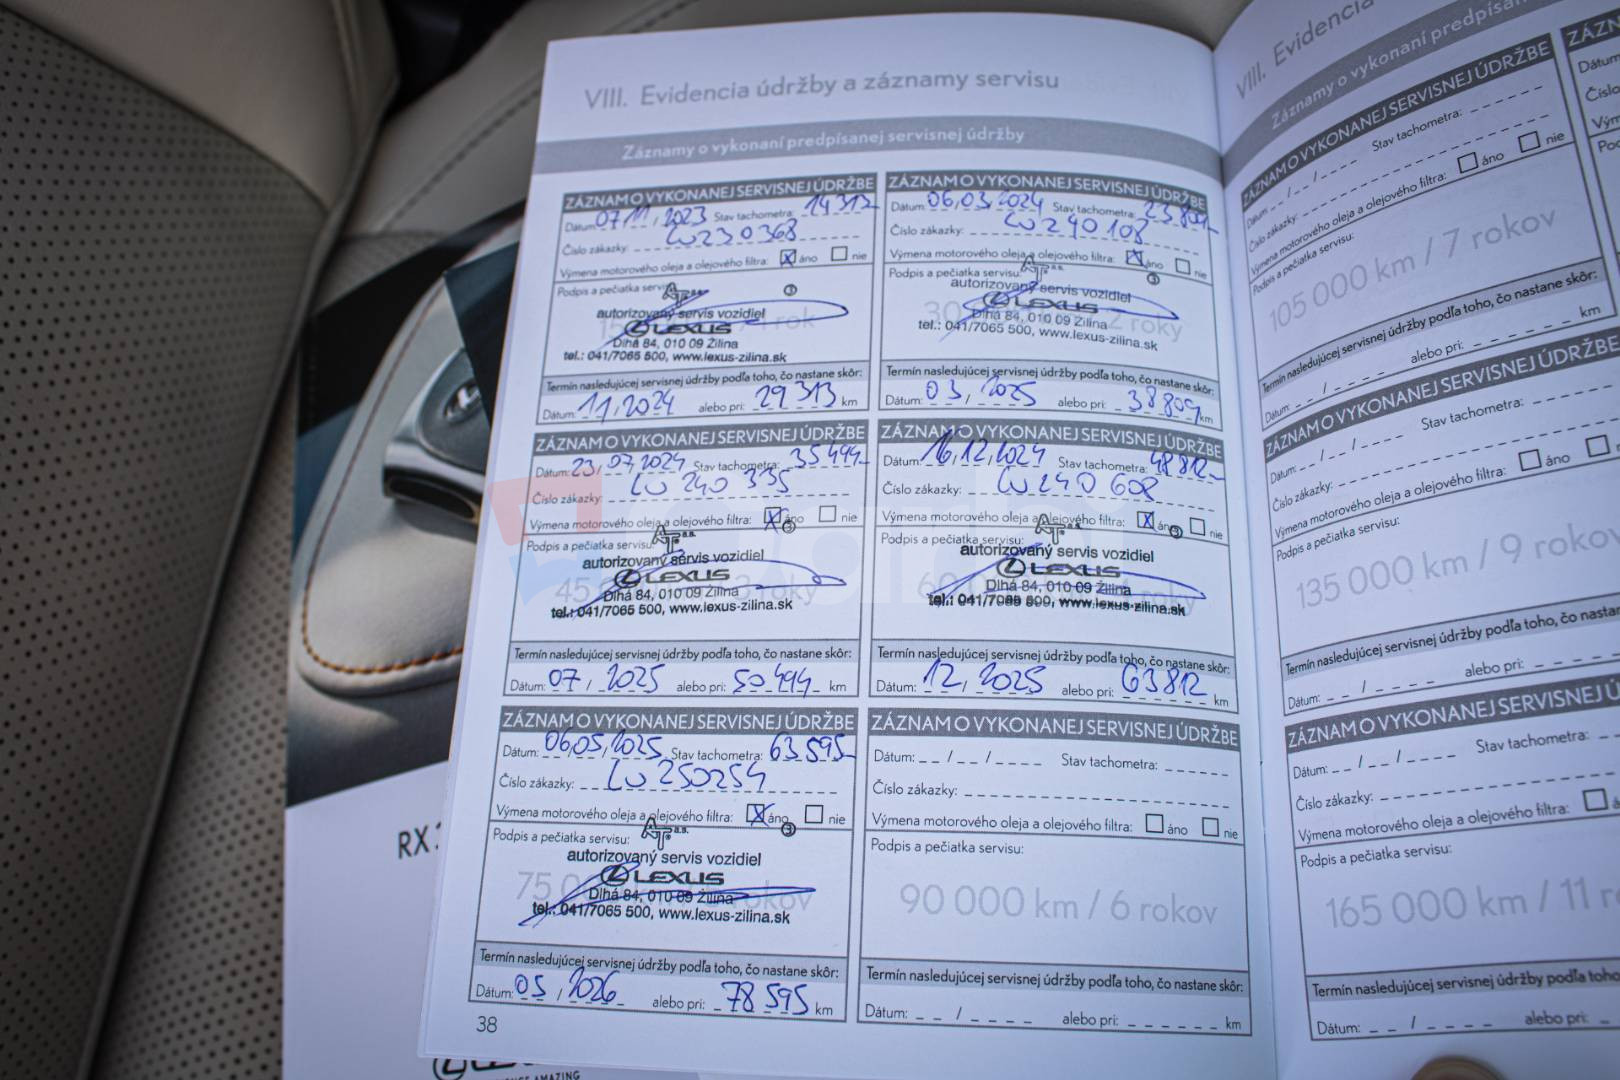 VIII. Evidencia údržby a záznamy servisu
Záznamy o vykonaní predpísanej servisnej údržby
ZÁZNAM O VYKONANEJ SERVISNEJ ÚDRŽBE
Dátum: 07/11/2023 Stav tachometra: 14313
Číslo zákazky: LV230368
Výmena motorového oleja a olejového filtra: X áno nie
Podpis a pečiatka servisu:
autorizovaný servis vozidiel
LEXUS
Dlhá 84, 010 09 Žilina
tel.: 041/7065 500, www.lexus-zilina.sk
Termín nasledujúcej servisnej údržby podľa toho, čo nastane skôr:
Dátum: 11/2024 alebo pri: 29313 km
ZÁZNAM O VYKONANEJ SERVISNEJ ÚDRŽBE
Dátum: 06/03/2024 Stav tachometra: 23809
Číslo zákazky: LV240108
Výmena motorového oleja a olejového filtra: X áno nie
Podpis a pečiatka servisu:
autorizovaný servis vozidiel
LEXUS
Dlhá 84, 010 09 Žilina
tel.: 041/7065 500, www.lexus-zilina.sk
Termín nasledujúcej servisnej údržby podľa toho, čo nastane skôr:
Dátum: 03/2025 alebo pri: 38809 km
ZÁZNAM O VYKONANEJ SERVISNEJ ÚDRŽBE
Dátum: 23/07/2024 Stav tachometra: 35494
Číslo zákazky: LV240335
Výmena motorového oleja a olejového filtra: X áno nie
Podpis a pečiatka servisu:
autorizovaný servis vozidiel
LEXUS
Dlhá 84, 010 09 Žilina
tel.: 041/7065 500, www.lexus-zilina.sk
Termín nasledujúcej servisnej údržby podľa toho, čo nastane skôr:
Dátum: 07/2025 alebo pri: 50494 km
ZÁZNAM O VYKONANEJ SERVISNEJ ÚDRŽBE
Dátum: 16/12/2024 Stav tachometra: 48812
Číslo zákazky: LV240608
Výmena motorového oleja a olejového filtra: X áno nie
Podpis a pečiatka servisu:
autorizovaný servis vozidiel
LEXUS
Dlhá 84, 010 09 Žilina
tel.: 041/7065 500, www.lexus-zilina.sk
Termín nasledujúcej servisnej údržby podľa toho, čo nastane skôr:
Dátum: 12/2025 alebo pri: 63812 km
ZÁZNAM O VYKONANEJ SERVISNEJ ÚDRŽBE
Dátum: 06/05/2025 Stav tachometra: 63595
Číslo zákazky: LV250254
Výmena motorového oleja a olejového filtra: X áno nie
Podpis a pečiatka servisu:
autorizovaný servis vozidiel
LEXUS
Dlhá 84, 010 09 Žilina
tel.: 041/7065 500, www.lexus-zilina.sk
Termín nasledujúcej servisnej údržby podľa toho, čo nastane skôr:
Dátum: 05/2026 alebo pri: 78595 km
ZÁZNAM O VYKONANEJ SERVISNEJ ÚDRŽBE
Dátum: / / Stav tachometra:
Číslo zákazky:
Výmena motorového oleja a olejového filtra: áno nie
Podpis a pečiatka servisu:
90 000 km / 6 rokov
Termín nasledujúcej servisnej údržby podľa toho, čo nastane skôr:
Dátum: / alebo pri: km
38
VIII. Evidencia
Záznamy o vykonaní predpísanej
ZÁZNAM O VYKONANEJ SERVISNEJ ÚDRŽBE
Dátum: / / Stav tachometra:
Číslo zákazky:
Výmena motorového oleja a olejového filtra: áno nie
Podpis a pečiatka servisu:
105 000 km / 7 rokov
Termín nasledujúcej servisnej údržby podľa toho, čo nastane skôr:
Dátum: / alebo pri: km
ZÁZNAM O VYKONANEJ SERVISNEJ ÚDRŽBE
Dátum: / / Stav tachometra:
Číslo zákazky:
Výmena motorového oleja a olejového filtra: áno
Podpis a pečiatka servisu:
135 000 km / 9 rokov
Termín nasledujúcej servisnej údržby podľa toho, čo nastane
Dátum: / alebo pri:
ZÁZNAM O VYKONANEJ SERVISNEJ
Dátum: / / Stav tachometra:
Číslo zákazky:
Výmena motorového oleja a olejového filtra:
Podpis a pečiatka servisu:
165 000 km / 11
Termín nasledujúcej servisnej údržby podľa toho
Dátum: / alebo pri:
RX
AMAZING